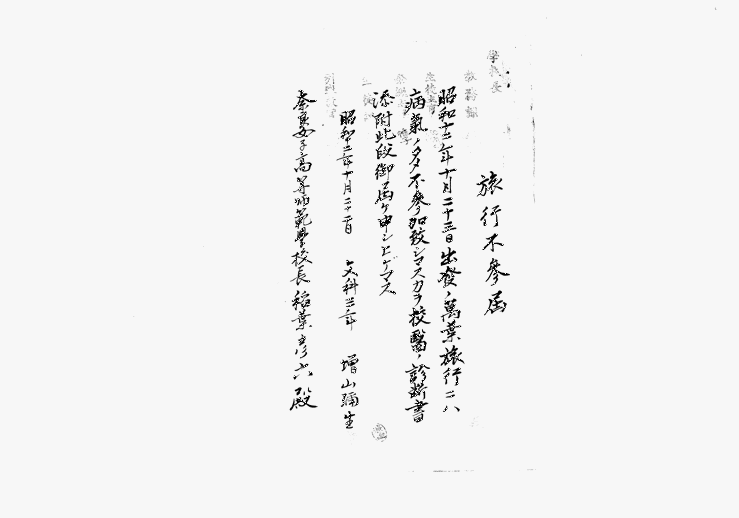 旅行不參届
昭和十二年十月二十三日出發ノ萬葉旅行ニハ
病氣ノタメ不參加致シマスカラ校醫ノ診断書
添附此段御届ケ申シ上ゲマス
昭和十二年十月二十二日 文科三年 增山彌生
奈良女子高等師範學校長 稻葉彦六殿
學校長